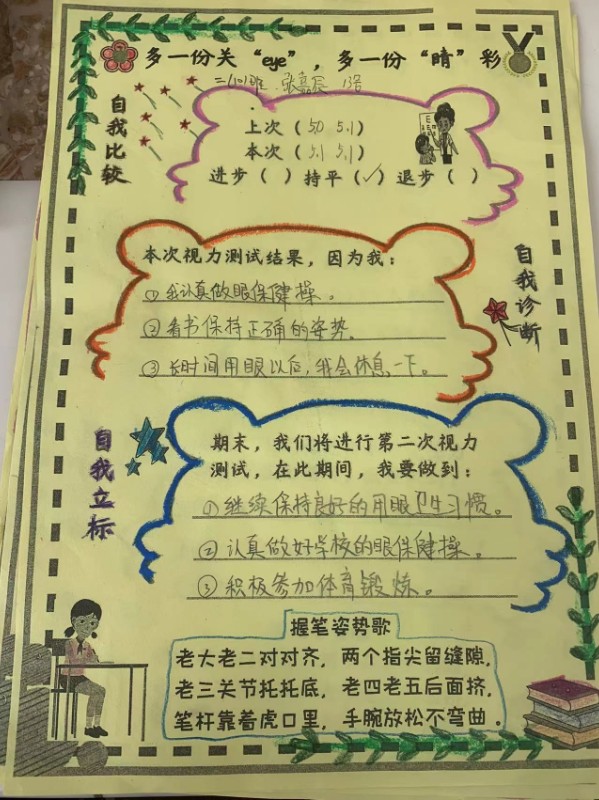 多一份关“eye”，多一份“睛”彩
自我比较
上次（5.0 5.1）
本次（5.1 5.1）
进步（ ）持平（✓）退步（ ）
自我诊断
本次视力测试结果，因为我：
①我认真做眼保健操。
②看书保持正确的姿势。
③长时间用眼以后，我会休息一下。
自我立标
期末，我们将进行第二次视力
测试，在此期间，我要做到：
①继续保持良好的用眼卫生习惯。
②认真做好学校的眼保健操。
③积极参加体育锻炼。
握笔姿势歌
老大老二对对齐，两个指尖留缝隙，
老三关节托托底，老四老五后面挤，
笔杆靠着虎口里，手腕放松不弯曲。